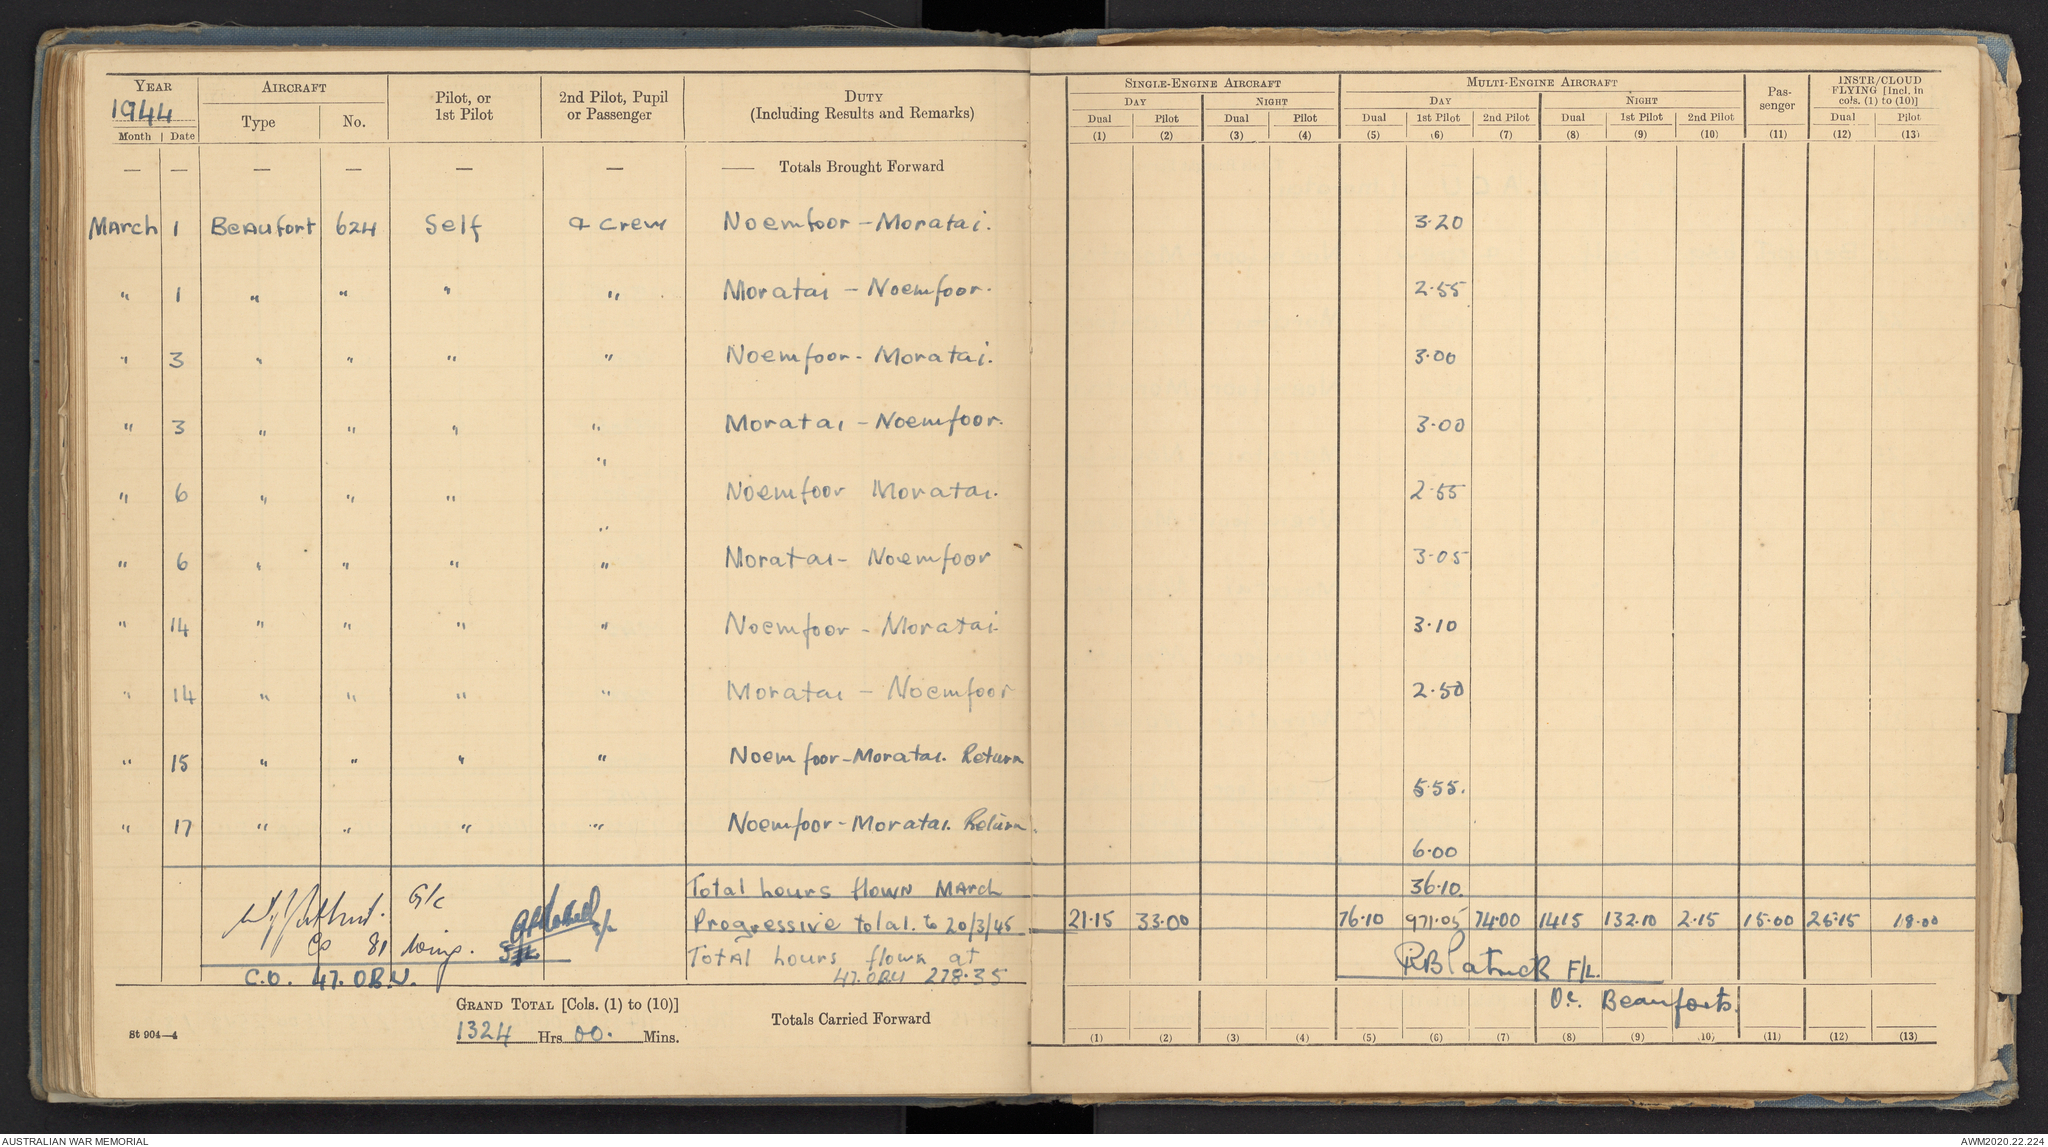 YEAR AIRCRAFT Pilot, or 1st Pilot 2nd Pilot, Pupil or Passenger DUTY (Including Results and Remarks) SINGLE-ENGINE AIRCRAFT MULTI-ENGINE AIRCRAFT Pas-senger INSTR/CLOUD FLYING [Incl. in cols. (1) to (10)]
1944 Type No. DAY NIGHT DAY NIGHT
Month Date Dual Pilot Dual Pilot Dual 1st Pilot 2nd Pilot Dual 1st Pilot 2nd Pilot Dual Pilot
(1) (2) (3) (4) (5) (6) (7) (8) (9) (10) (11) (12) (13)
— — — — — — — Totals Brought Forward
March 1 Beaufort 624 Self & Crew Noemfoor - Moratai. 3·20
" 1 " " " " Moratai - Noemfoor. 2·55
" 3 " " " " Noemfoor - Moratai. 3·00
" 3 " " " " Moratai - Noemfoor. 3·00
" 6 " " " " Noemfoor Moratai. 2·55
" 6 " " " " Moratai - Noemfoor 3·05
" 14 " " " " Noemfoor - Moratai 3·10
" 14 " " " " Moratai - Noemfoor 2·50
" 15 " " " " Noemfoor - Moratai. Return 5·55.
" 17 " " " " Noemfoor - Moratai. Return. 6·00
Total hours flown March 36·10.
G/c
Progressive total. to 20/3/45 21·15 33·00 76·10 971·05 74·00 14 15 132·10 2·15 15·00 25·15 18·00
CO 81 Wing.
Total hours flown at
47. OBU 278·35
RB Patrick F/L.
C.O. 47. O.B.U.
Oc. Beauforts.
GRAND TOTAL [Cols. (1) to (10)]
1324 Hrs 00. Mins.
Totals Carried Forward
(1) (2) (3) (4) (5) (6) (7) (8) (9) (10) (11) (12) (13)
St 904—4
AUSTRALIAN WAR MEMORIAL
AWM2020.22.224